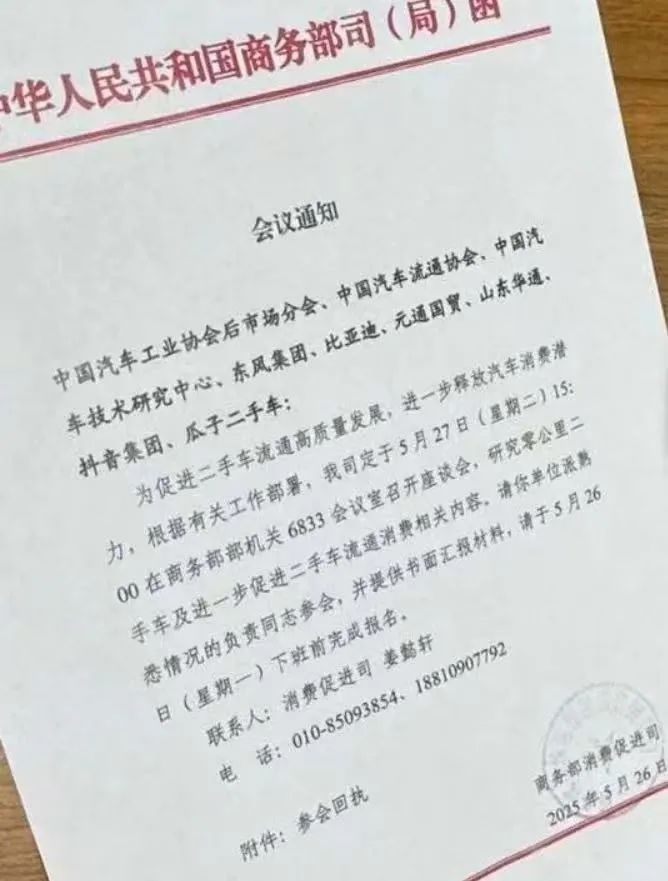 中华人民共和国商务部司（局）函
会议通知
中国汽车工业协会后市场分会、中国汽车流通协会、中国汽
车技术研究中心、东风集团、比亚迪、元通国贸、山东华通、
抖音集团、瓜子二手车：
为促进二手车流通高质量发展，进一步释放汽车消费潜
力，根据有关工作部署，我司定于5月27日（星期二）15:
00在商务部部机关6833会议室召开座谈会，研究零公里二
手车及进一步促进二手车流通消费相关内容。请你单位派熟
悉情况的负责同志参会，并提供书面汇报材料，请于5月26
日（星期一）下班前完成报名。
联系人：消费促进司 姜懿轩
电 话：010-85093854、18810907792
商务部消费促进司
2025年5月26日
附件：参会回执